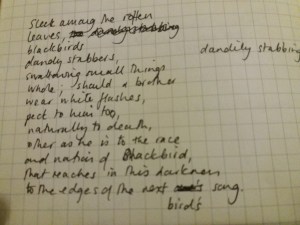 Sleek among the rotten
leaves, the dandily stabbing
blackbirds dandily stabbing
dandy stabbers,
swallowing small things
whole; should a brother
wear white flashes,
pect to him too,
naturally to death,
other as he is to the race
and nation of Blackbird,
that reaches in this darkness
to the edges of the next song.
bird's